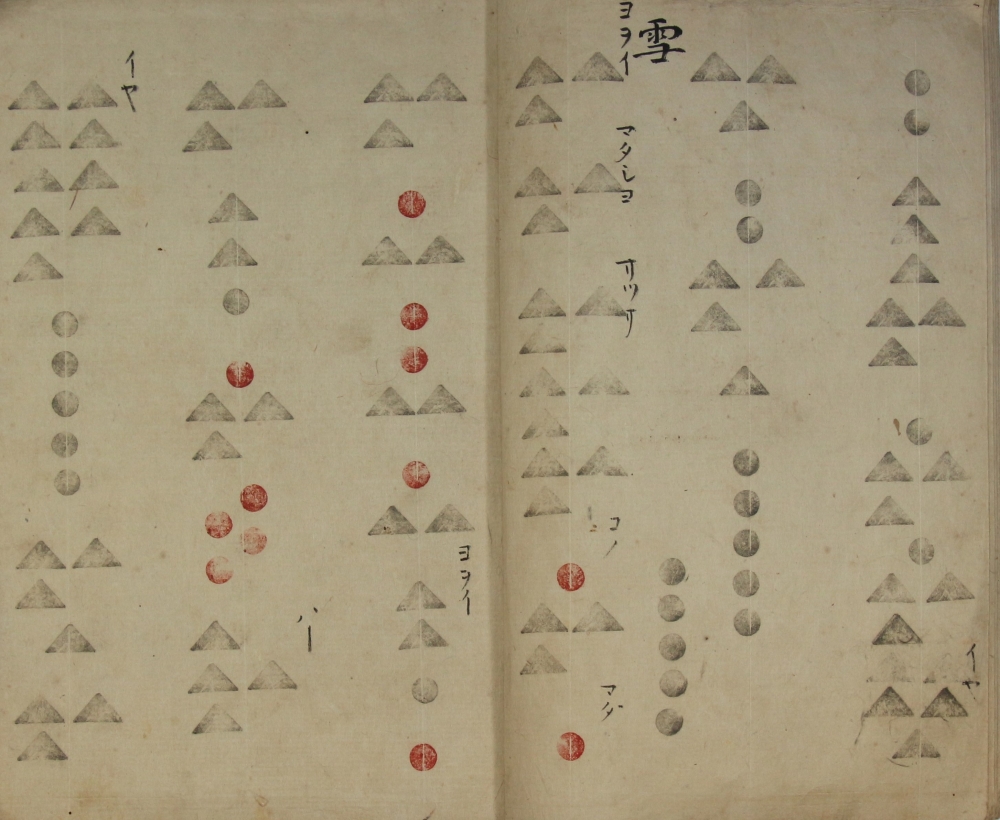 イヤ
雪
ヨヲイ
マタシヨ
オツオ
コノ
マダ
ヨヲイ
ハー
イヤ